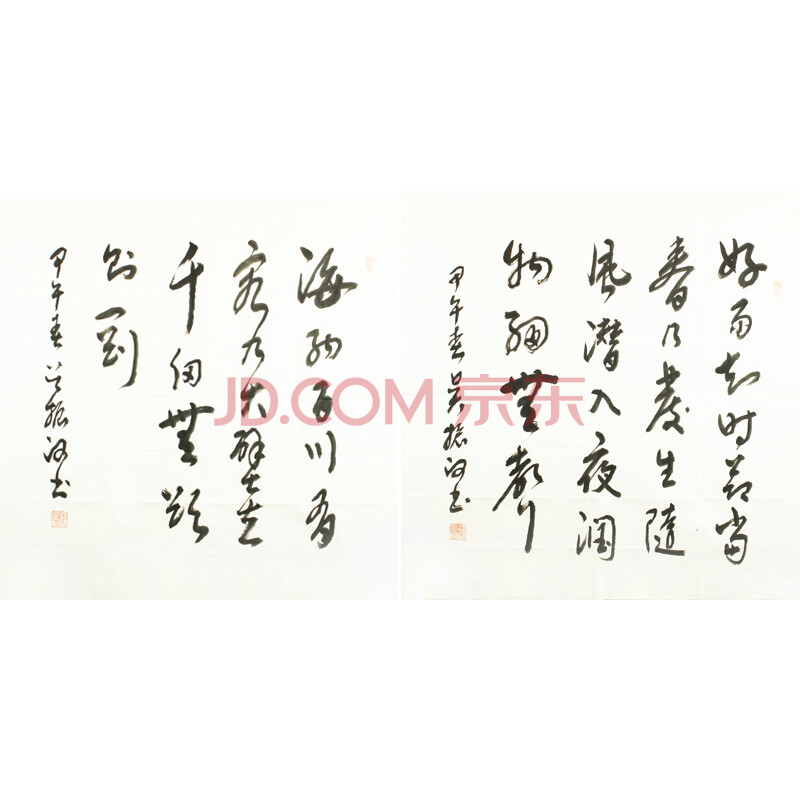 好雨知时节当
春乃发生随
风潜入夜润
物细無声
甲午春吴振书
海纳百川有
容乃大壁立
千仞無欲
则刚
甲午春吴振书
JD.COM 京东